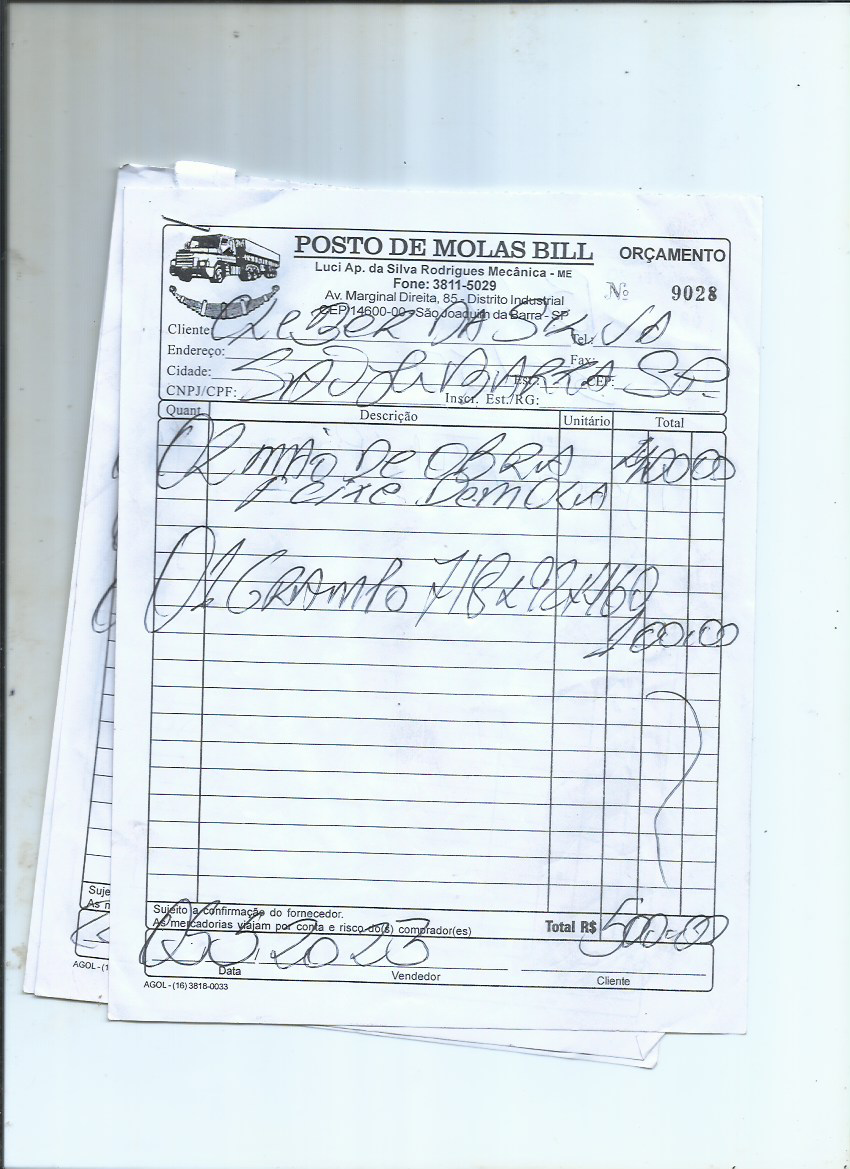 POSTO DE MOLAS BILL
ORÇAMENTO
Luci Ap. da Silva Rodrigues Mecânica - ME
Fone: 3811-5029
Nº 9028
Av. Marginal Direita, 85 - Distrito Industrial
CEP 14600-00 - São Joaquim da Barra - SP
Cliente CLEBER DA SILVA Tel.:
Endereço: Fax:
Cidade: BARRA SP. Est.: CEP:
CNPJ/CPF: Inscr. Est./RG:
Quant. Descrição Unitário Total
02 MÃO DE OBRA 400 00
Feixe DE MOLA
01 GRAMPO 7/8x92x460
100.00
Suje
As m
Sujeito a confirmação do fornecedor.
As mercadorias viajam por conta e risco do(s) comprador(es)
Total R$ 500.00
2023
Data Vendedor Cliente
AGOL - (1
AGOL - (16) 3818-0033